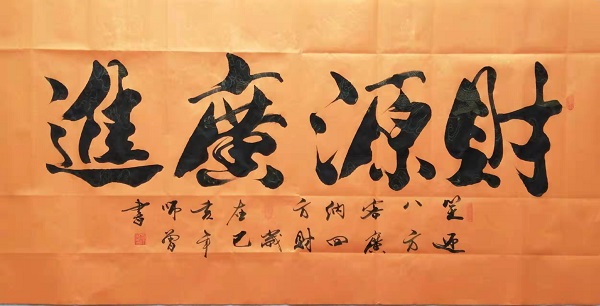 財源廣進
笑迎
八方
客廣
納四
方財
歲
在巳
年
書